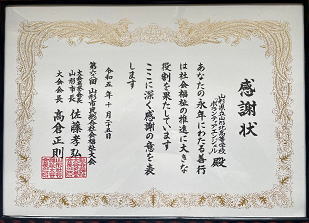 感謝状
山形県立山形北高等学校
ボランティアエンジェル 殿
あなたの永年にわたる善行
は社会福祉の推進に大きな
役割を果たしています
ここに深く感謝の意を表
します
令和五年十月二十五日
第六回 山形市民総合社会福祉大会
山形市長 佐藤孝弘
大会会長 高倉正則